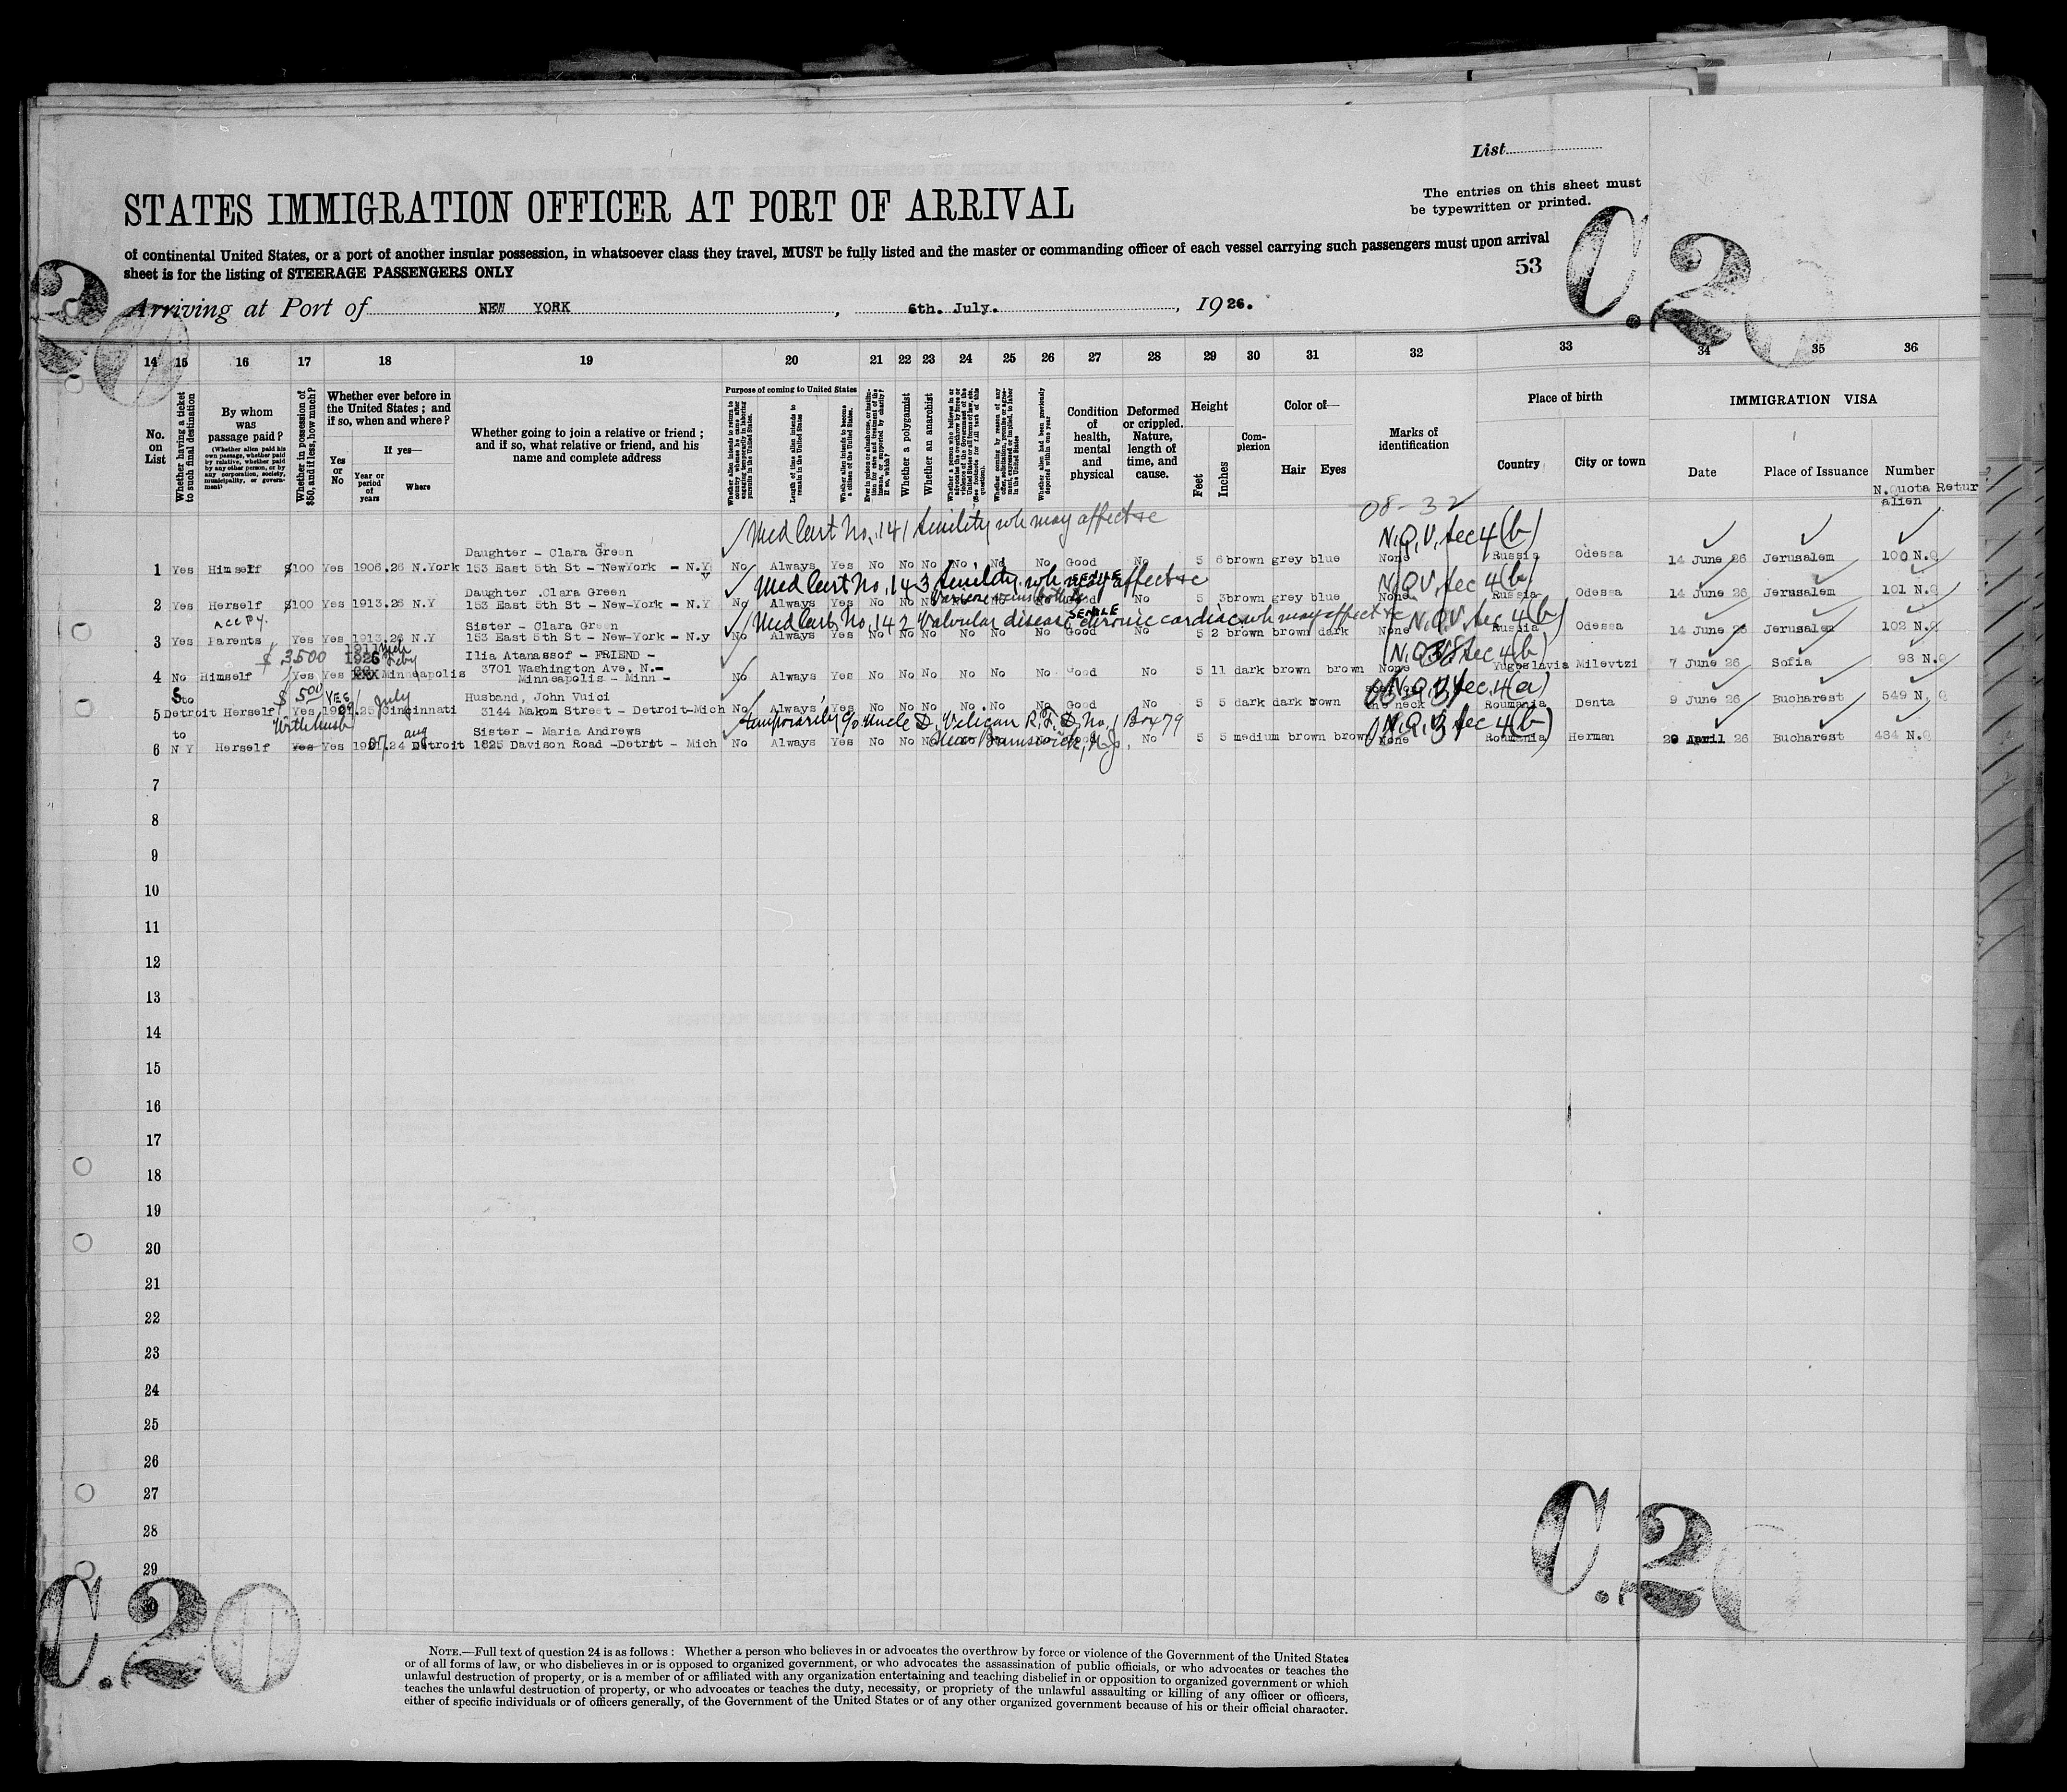 List
The entries on this sheet must
be typewritten or printed.
STATES IMMIGRATION OFFICER AT PORT OF ARRIVAL
of continental United States, or a port of another insular possession, in whatsoever class they travel, MUST be fully listed and the master or commanding officer of each vessel carrying such passengers must upon arrival
sheet is for the listing of STEERAGE PASSENGERS ONLY
53
C.20
Arriving at Port of NEW YORK, 6th. July., 1926.
14 15 16 17 18 19 20 21 22 23 24 25 26 27 28 29 30 31 32 33 34 35 36
No. on List
Whether having a ticket to such final destination
By whom was passage paid?
(Whether alien paid his own passage, whether paid by relative, whether paid by any other person, or by any corporation, society, municipality, or government)
Whether in possession of $50, and if less, how much?
Whether ever before in the United States; and if so, when and where?
Yes or No
If yes—
Year or period of years
Where
Whether going to join a relative or friend; and if so, what relative or friend, and his name and complete address
Purpose of coming to United States
Whether alien intends to return to country whence he came after engaging temporarily in laboring pursuits in the United States.
Length of time alien intends to remain in the United States
Whether alien intends to become a citizen of the United States.
Whether a polygamist
Whether an anarchist
Whether alien had been previously deported within one year
Condition of health, mental and physical
Deformed or crippled. Nature, length of time, and cause.
Height
Feet
Inches
Complexion
Color of—
Hair Eyes
Marks of identification
Place of birth
Country
City or town
IMMIGRATION VISA
Date
Place of Issuance
Number
N.Quota Retur
alien
08-32
Med Cert No. 141 Senility wh may affect
N.Q.V. Sec 4(b)
Daughter - Clara Green
1 Yes Himself $100 Yes 1906.26 N.York 153 East 5th St - NewYork - N.Y No Always Yes No No No No No No Good No 5 6 brown grey blue None Russia Odessa 14 June 26 Jerusalem 100 N.Q
Med Cert No. 143 Senility wh may affect
N.Q.V. Sec 4(b)
SENILE
Daughter .Clara Green
2 Yes Herself $100 Yes 1913.26 N.Y 153 East 5th St - New-York - N.Y No Always Yes No No No No No No Good No 5 3 brown grey blue None Russia Odessa 14 June 26 Jerusalem 101 N.Q
Med Cert No. 142 Valvular disease chronic cardiac wh may affect
N.Q.V. Sec 4(b)
SENILE
Sister - Clara Green
3 Yes Parents Yes Yes 1913.26 N.Y 153 East 5th St - New-York - N.y No Always Yes No No No No No No Good No 5 2 brown brown dark None Russia Odessa 14 June 26 Jerusalem 102 N.Q
$3500
N.Q.V. Sec 4(b)
Ilia Atanassof - FRIEND -
3701 Washington Ave. N.-
4 No Himself Yes Yes 1926 Minneapolis Minneapolis - Minn - No Always Yes No No No No No No Good No 5 11 dark brown brown None Yugoslavia Milevtzi 7 June 26 Sofia 98 N.Q
$500 YES July
N.Q.V. Sec 4(a)
Husband, John Vuici
5 to Detroit Herself Yes 25 Cincinnati 3144 Makom Street - Detroit-Mich No Always Yes No No No No No No Good No 5 5 dark dark brown the neck Roumania Denta 9 June 26 Bucharest 549 N, Q
With husb
temporarily c/o Uncle D. Veligan R.F.D. No. 1 Box 79
New Brunswick, N.J.
N.Q.V. Sec 4(b)
Sister - Maria Andrews
6 to N Y Herself Yes Yes 24 Detroit 1825 Davison Road -Detroit - Mich No Always Yes No No No No 5 5 medium brown brown None Roumania Herman 29 April 26 Bucharest 484 N.Q
7
8
9
10
11
12
13
14
15
16
17
18
19
20
21
22
23
24
25
26
27
28
29
C.20
C.20
NOTE.—Full text of question 24 is as follows: Whether a person who believes in or advocates the overthrow by force or violence of the Government of the United States
or of all forms of law, or who disbelieves in or is opposed to organized government, or who advocates the assassination of public officials, or who advocates or teaches the
unlawful destruction of property, or is a member of or affiliated with any organization entertaining and teaching disbelief in or opposition to organized government or which
teaches the unlawful destruction of property, or who advocates or teaches the duty, necessity, or propriety of the unlawful assaulting or killing of any officer or officers,
either of specific individuals or of officers generally, of the Government of the United States or of any other organized government because of his or their official character.